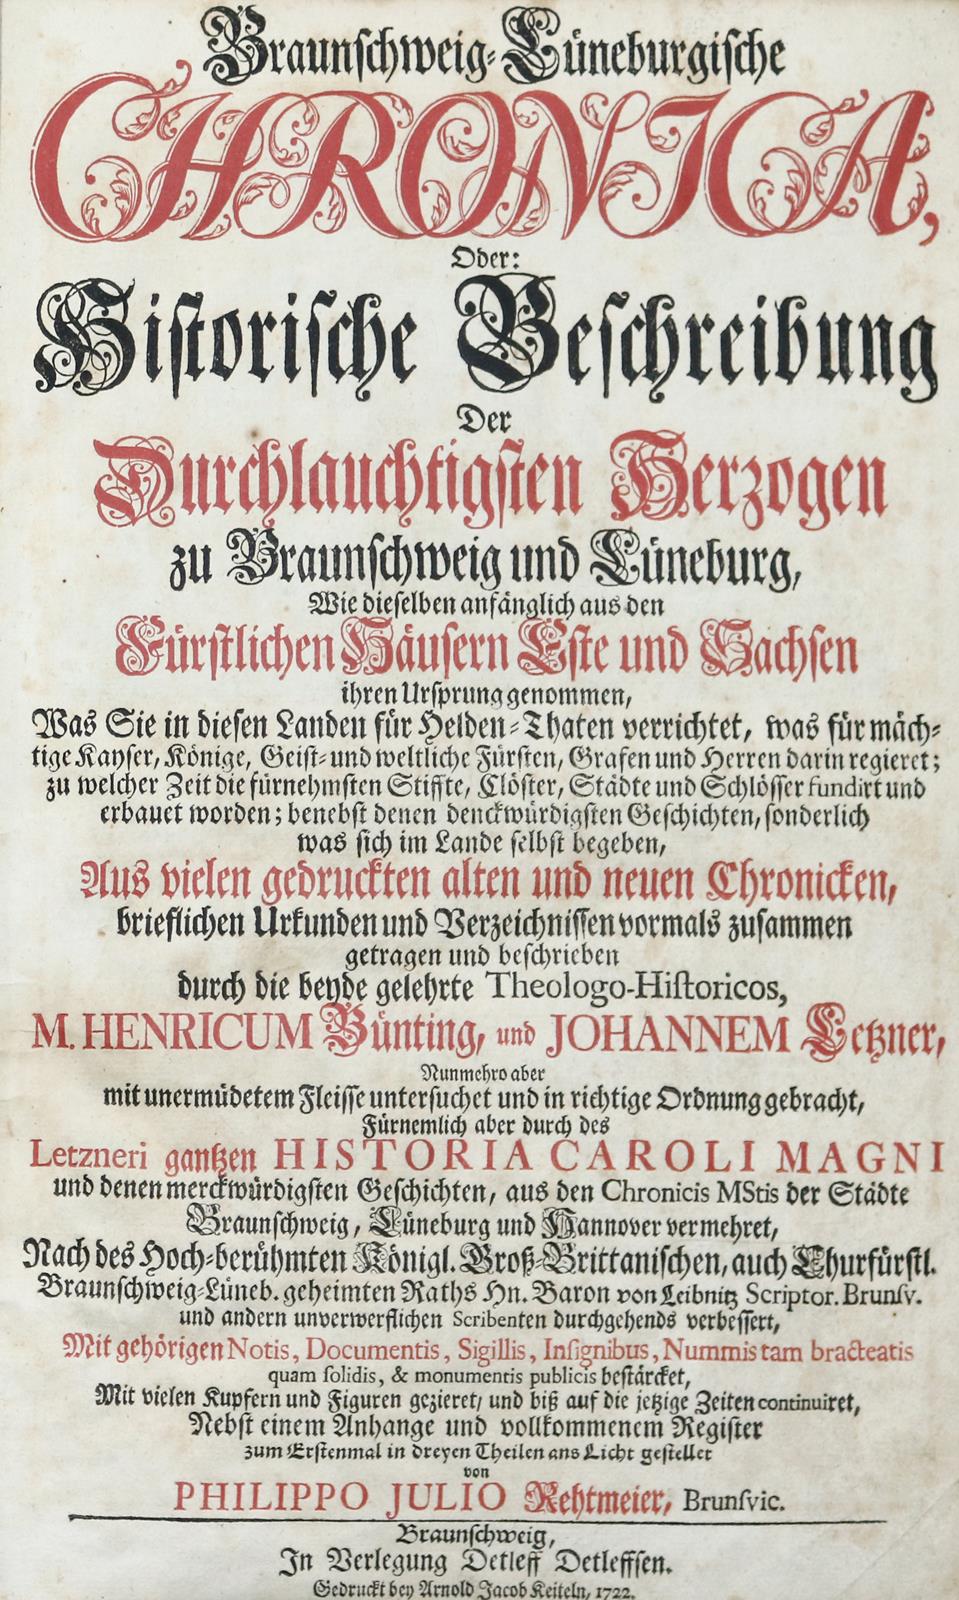 Braunschweig-Lüneburgische
CHRONICA,
Oder:
Historische Beschreibung
Der
Durchlauchtigsten Herzogen
zu Braunschweig und Lüneburg,
Wie dieselben anfänglich aus den
Fürstlichen Häusern Este und Sachsen
ihren Ursprung genommen,
Was Sie in diesen Landen für Helden-Thaten verrichtet, was für mäch-
tige Kayser, Könige, Geist- und weltliche Fürsten, Grafen und Herren darin regieret;
zu welcher Zeit die fürnehmsten Stiffte, Clöster, Städte und Schlösser fundirt und
erbauet worden; benebst denen denckwürdigsten Geschichten, sonderlich
was sich im Lande selbst begeben,
Aus vielen gedruckten alten und neuen Chronicken,
brieflichen Urkunden und Verzeichnissen vormals zusammen
getragen und beschrieben
durch die beyde gelehrte Theologo-Historicos,
M. HENRICUM Bünting, und JOHANNEM Letzner,
Nunmehro aber
mit unermüdetem Fleisse untersuchet und in richtige Ordnung gebracht,
Fürnemlich aber durch des
Letzneri gantzen HISTORIA CAROLI MAGNI
und denen merckwürdigsten Geschichten, aus den Chronicis MStis der Städte
Braunschweig, Lüneburg und Hannover vermehret,
Nach des Hoch-berühmten Königl. Groß-Brittanischen, auch Churfürstl.
Braunschweig-Lüneb. geheimten Raths Hn. Baron von Leibnitz Scriptor. Brunsv.
und andern unverwerflichen Scribenten durchgehends verbessert,
Mit gehörigen Notis, Documentis, Sigillis, Insignibus, Nummis tam bracteatis
quam solidis, & monumentis publicis bestärcket,
Mit vielen Kupfern und Figuren gezieret, und biß auf die jetzige Zeiten continuiret,
Nebst einem Anhange und vollkommenem Register
zum Erstenmal in dreyen Theilen ans Licht gestellet
von
PHILIPPO JULIO Rehtmeier, Brunsvic.
Braunschweig,
In Verlegung Detleff Detleffsen.
Gedruckt bey Arnold Jacob Keiteln, 1722.